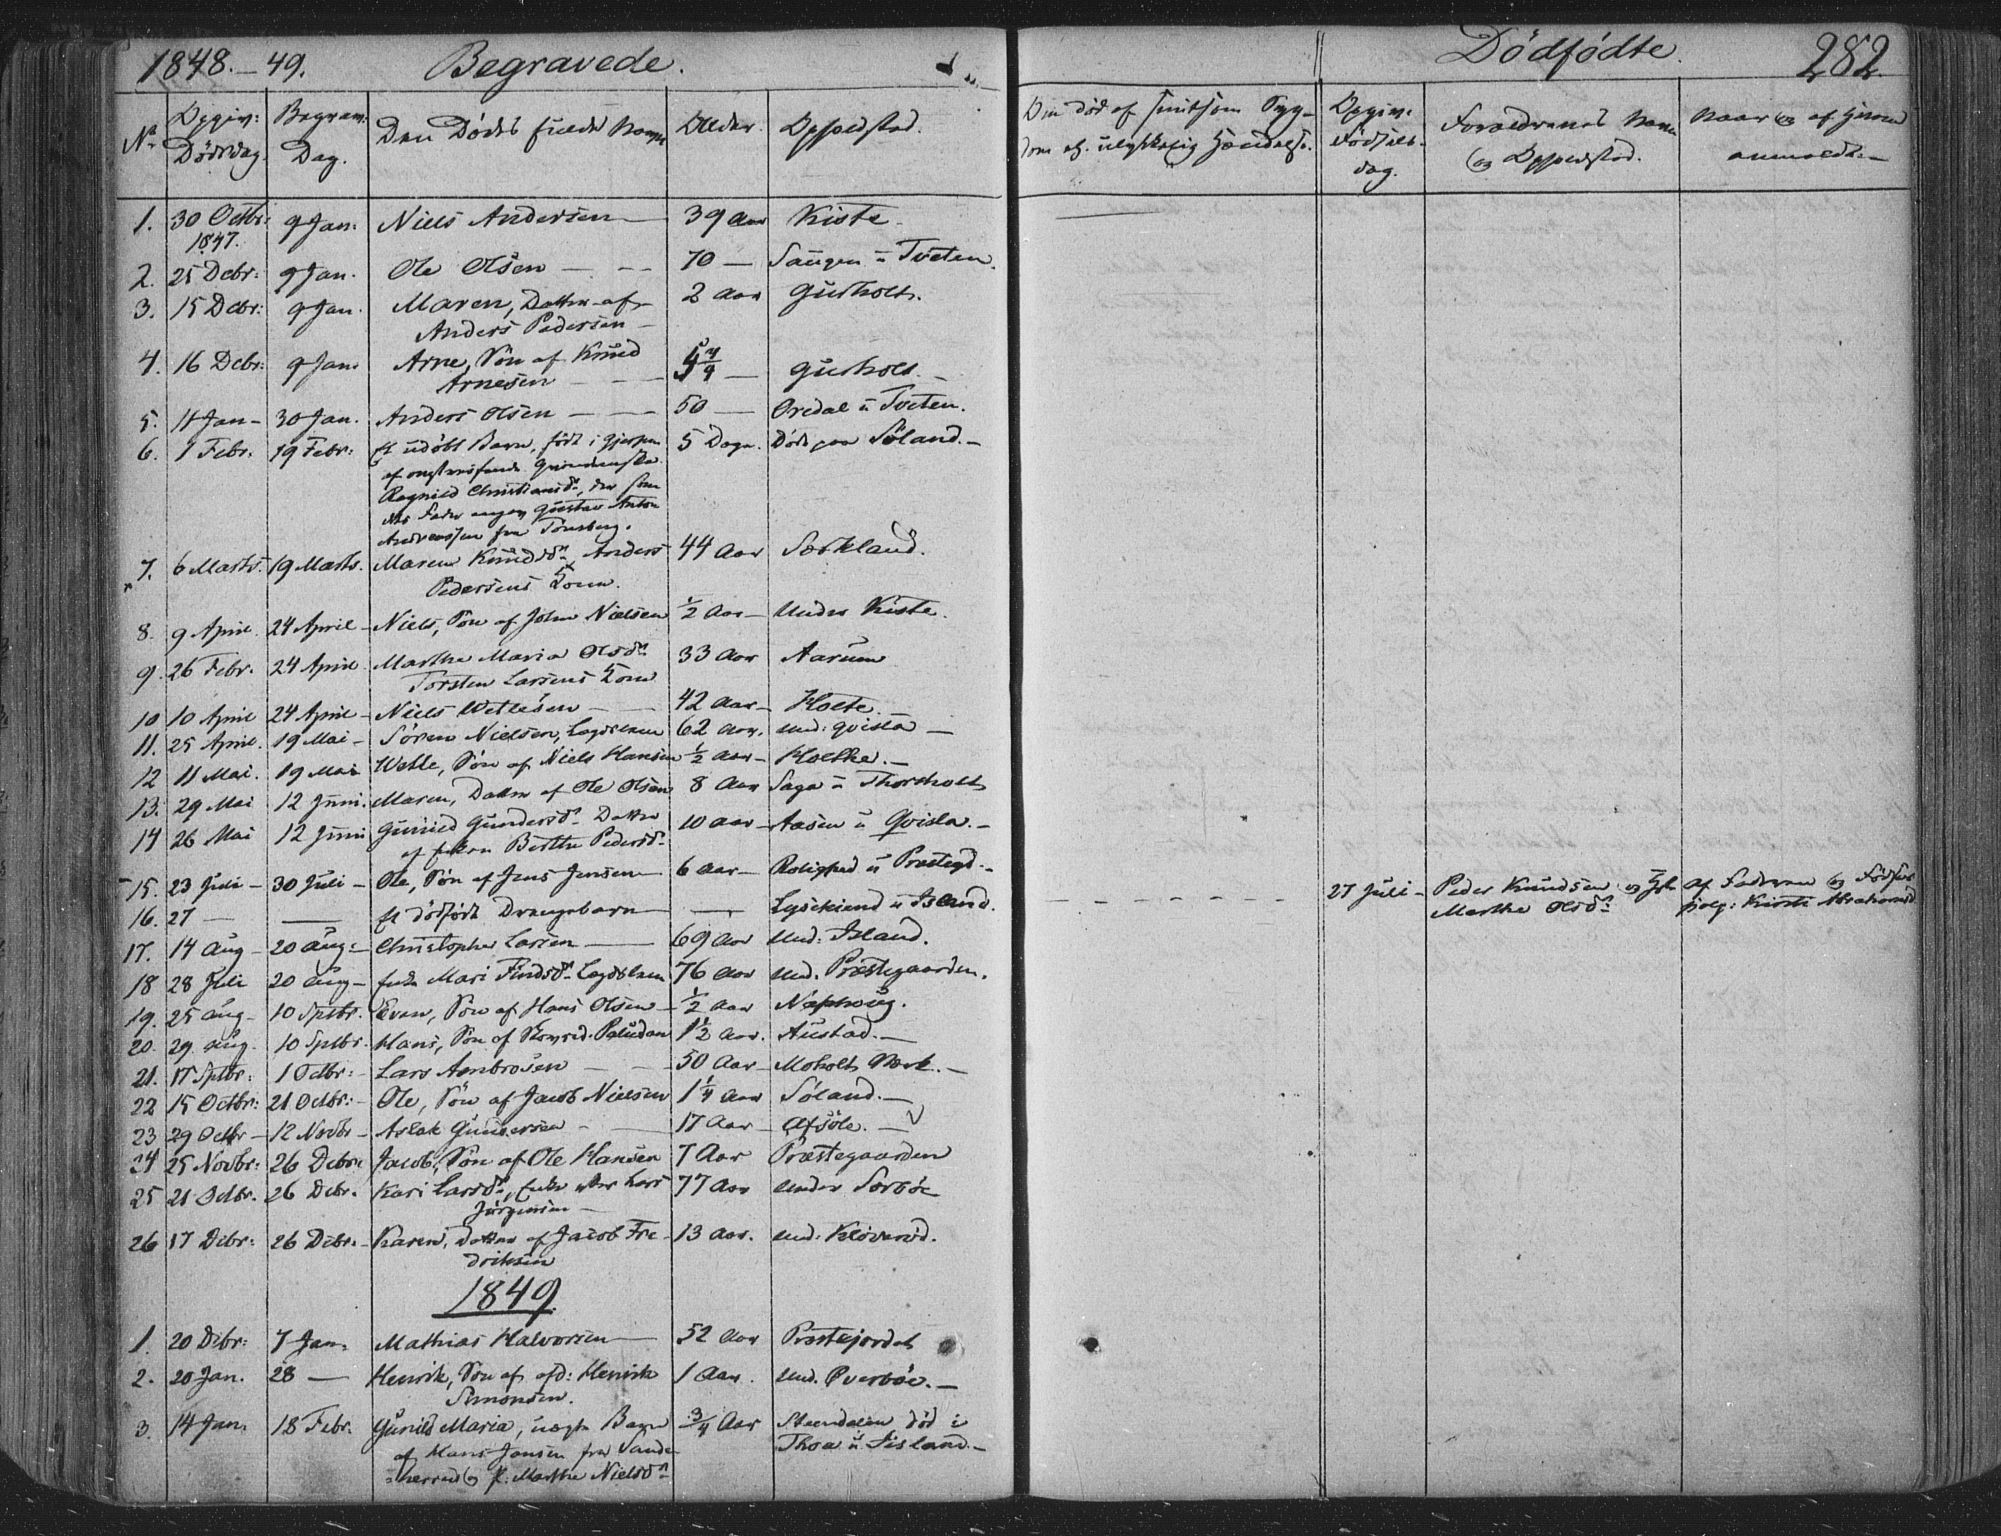 1848.-49. Begravede. Dödfödte. 282.
No Opgiv: Dödsdag. Begrav: Dag. Den Dödes fulde Navn Alder. Opholdstad.
Opgiv: Födsels-dag. Forældrenes Navn og Opholdstad. Naar og af hvem anmeldt.
1. 30 Octbr: 1847. 9 Jan: Niels Andersen 39 Aar Kiste
2. 25 Debr: 9 Jan. Ole Olsen 70 — Saugen u Tveten.
3. 15 Debr: 9 Jan. Maren, Datter af 2 Aar Gusholt.
Anders Pedersen
4. 16 Debr: 9 Jan. Arne, Sön af Knud
Arnesen — Gusholt.
5. 11 Jan - 30 Jan. Anders Olsen 50 — Oredal u Tveten.
6. 1 Febr. 19 Febr: Et udöbt Barn, födt i Gjerpen 5 Dage. Död paa Söland.
af omstreifende Qvindemske
Ragnild Christiansdr, der som
dets Fader angav Gustav Anton
Andreassen fra Tönsberg.
7. 6 Marts. 19 Marts. Maren Knudsdr Anders 44 Aar Sætkland.
Pedersens Kone.
8. 9 April 24 April Niels, Sön af John Nielsen 1/2 Aar under Kiste.
9. 26 Febr. 24 April Marthe Maria Olsdr 33 Aar Aarum
Torsten Larsens Kone
10 10 April 24 April Niels Wetlesen 42 Aar Holte.
11. 25 April. 19 Mai Sören Nielsen, Lægdslem 62 Aar. und: Qvisla
12 11 Mai. 19 Mai Wetle, Sön af Niels Hansen 1/2 Aar Holthe.
13. 29 Mai 12 Juni. Maren, Datter af Ole Olsen 8 Aar Saga u Thorsholt
14 26 Mai 12 Juni Gunild Gundersdr Datter 10 Aar Aasen u Qvisla.
af Enken Berthe Pedersdr
15. 23 Juli 30 Juli Ole, Sön af Jens Jensen 6 Aar Rolighed u Præstegd.
16. 27 — — Et dödfödt Drengebarn — Lysekiend u Island. 27 Juli - Peder Knudsen og Marthe Olsdr af Faderen og Födselshjelp: Kirsti Abrahamsd
17. 14 Aug 20 Aug: Christopher Larsen 69 Aar und: Island.
18 28 Juli 20 Aug Enke Mari Findsdr Lægdslem 76 Aar und. Præstegaarden.
19. 25 Aug 10 Sptbr. Even, Sön af Hans Olsen 1/2 Aar Naphoug.
20. 29 Aug 10 Sptbr. Hans, Sön af Paludan 1 1/2 Aar. Austad.
21. 17 Sptbr: 1 Octbr: Lars Ambrosen 50 Aar Moholt Værk.
22 15 Octbr: 21 Octbr: Ole, Sön af Jacob Nielsen 1 1/4 Aar Söland.
23 29 Octbr 12 Novbr Aslak Gundersen 17 Aar Afsöle.
24 25 Novbr: 26 Debr: Jacob, Sön af Ole Hansen 7 Aar Præstegaarden
25 21 Octbr. 26 Debr. Kari Larsdr, Enke efter Lars 77 Aar under Sorböe
Jörgensen
26 17 Debr: 26 Debr: Karen, Datter af Jacob Fre- 13 Aar. und: Klöveröd.
driksen
1849
1. 20 Debr: 7 Jan. Mathias Halvorsen 52 Aar Præstejordet
2. 20 Jan. 28 — Henrik, Sön af afd: Henrik 1 Aar. und. Överböe.
Simonsen.
3. 14 Jan. 18 Febr. Gunild Maria, uægte Barn 3/4 Aar Steendalen död i
af Hans Jansen fra Sande- Thoa u Sisland.
=herred og P: Marthe Nielsdr